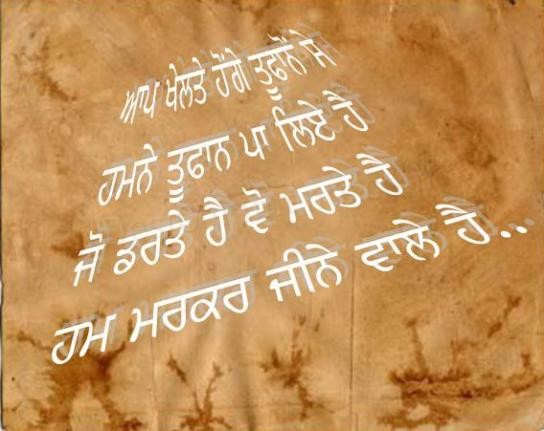 ਆਪ ਖੇਲਤੇ ਹੋਂਗੇ ਤੂਫ਼ਾਂਨੋ ਸੇ
ਹਮਨੇ ਤੂਫਾਨ ਪਾ ਲਿਏ ਹੈ
ਜੋ ਡਰਤੇ ਹੈ ਵੋ ਮਰਤੇ ਹੈ
ਹਮ ਮਰਕਰ ਜੀਨੇ ਵਾਲੇ ਹੈ...